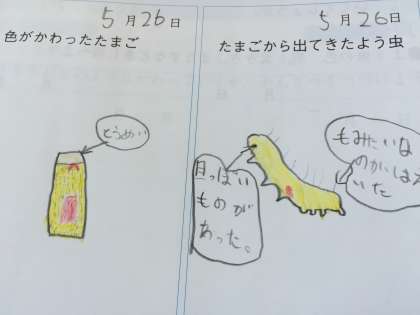 5月26日
色がかわったたまご
とうめい
5月26日
たまごから出てきたよう虫
目っぽい
ものが
あった。
毛みたいな
のがはえ
いた